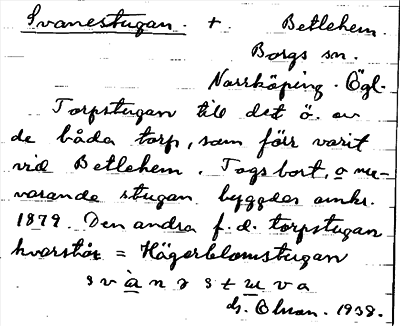 Svanestugan. +. Betlehem.
Borgs sn.
Norrköping. Ögl.
Torpstugan till det ö. av
de båda torp, som förr varit
vid Betlehem. Togs bort, o nu-
varande stugan byggdes omkr.
1879. Den andra f.d. torpstugan
kvarstår = Hägerblomstugan
svànəstuva
1938.